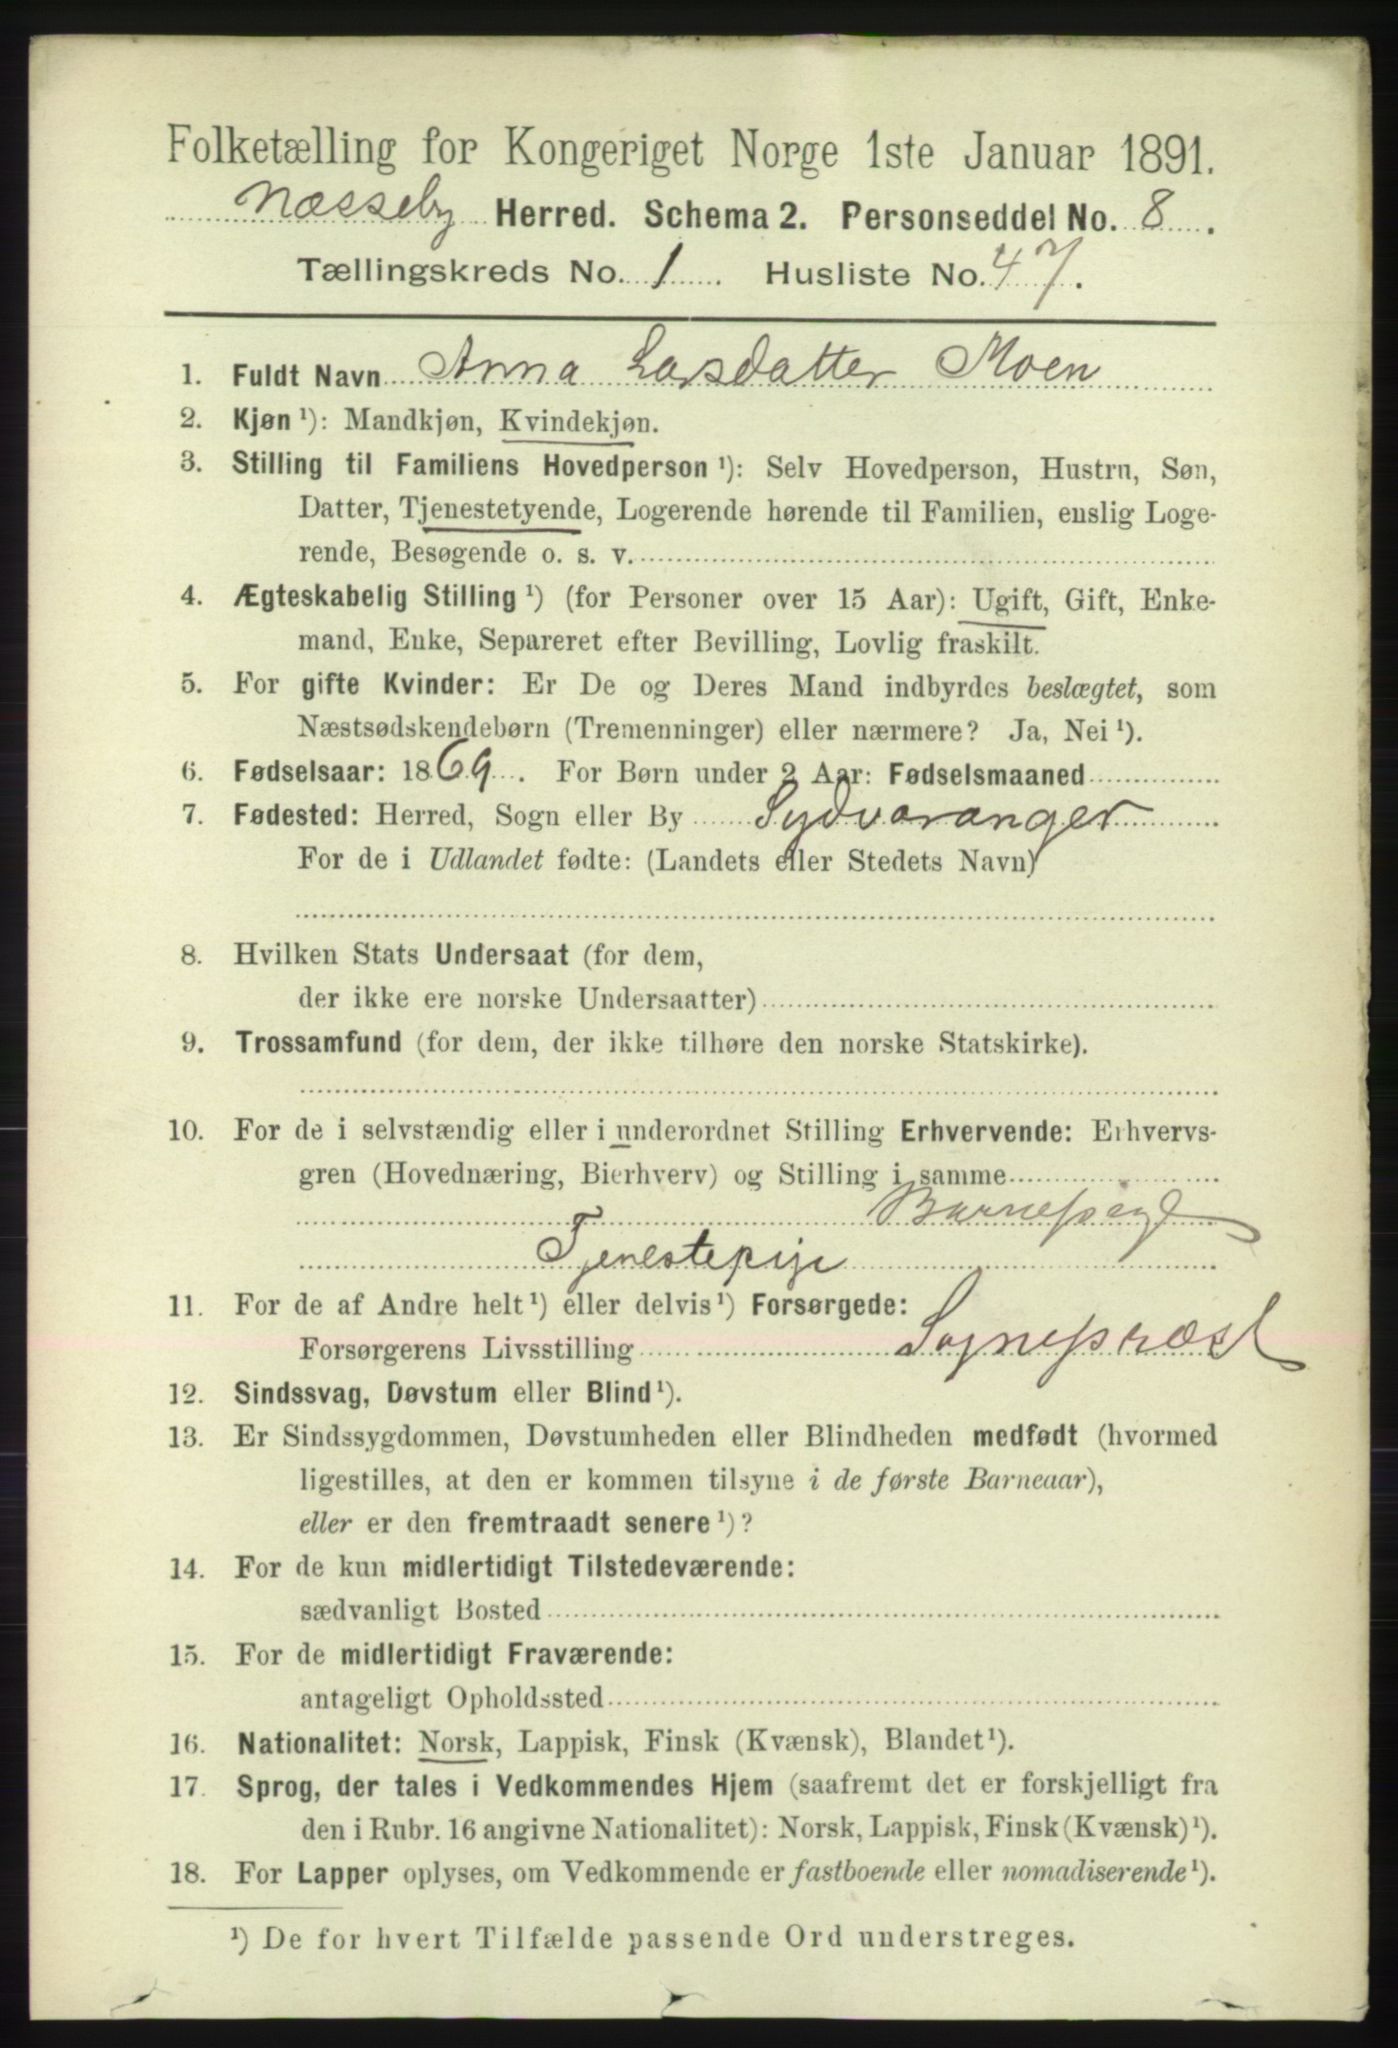 Folketælling for Kongeriget Norge 1ste Januar 1891.
Næsseby Herred. Schema 2. Personseddel No. 8.
Tællingskreds No. 1 Husliste No. 47.
1. Fuldt Navn Anna Larsdatter Moen
2. Kjøn ¹): Mandkjøn, Kvindekjøn.
3. Stilling til Familiens Hovedperson ¹): Selv Hovedperson, Hustru, Søn,
Datter, Tjenestetyende, Logerende hørende til Familien, enslig Loge-
rende, Besøgende o. s. v.
4. Ægteskabelig Stilling ¹) (for Personer over 15 Aar): Ugift, Gift, Enke-
mand, Enke, Separeret efter Bevilling, Lovlig fraskilt.
5. For gifte Kvinder: Er De og Deres Mand indbyrdes beslægtet, som
Næstsødskendebørn (Tremenninger) eller nærmere? Ja, Nei ¹).
6. Fødselsaar: 1869. For Børn under 2 Aar: Fødselsmaaned
7. Fødested: Herred, Sogn eller By Sydvaranger
For de i Udlandet fødte: (Landets eller Stedets Navn)
8. Hvilken Stats Undersaat (for dem,
der ikke ere norske Undersaatter)
9. Trossamfund (for dem, der ikke tilhøre den norske Statskirke).
10. For de i selvstændig eller i underordnet Stilling Erhvervende: Erhvervs-
gren (Hovednæring, Bierhverv) og Stilling i samme
Barnepige
Tjenestepige
11. For de af Andre helt ¹) eller delvis ¹) Forsørgede:
Forsørgerens Livsstilling Sognepræst
12. Sindssvag, Døvstum eller Blind ¹).
13. Er Sindssygdommen, Døvstumheden eller Blindheden medfødt (hvormed
ligestilles, at den er kommen tilsyne i de første Barneaar),
eller er den fremtraadt senere ¹)?
14. For de kun midlertidigt Tilstedeværende:
sædvanligt Bosted
15. For de midlertidigt Fraværende:
antageligt Opholdssted
16. Nationalitet: Norsk, Lappisk, Finsk (Kvænsk), Blandet ¹).
17. Sprog, der tales i Vedkommendes Hjem (saafremt det er forskjelligt fra
den i Rubr. 16 angivne Nationalitet): Norsk, Lappisk, Finsk (Kvænsk) ¹).
18. For Lapper oplyses, om Vedkommende er fastboende eller nomadiserende ¹).
¹) De for hvert Tilfælde passende Ord understreges.